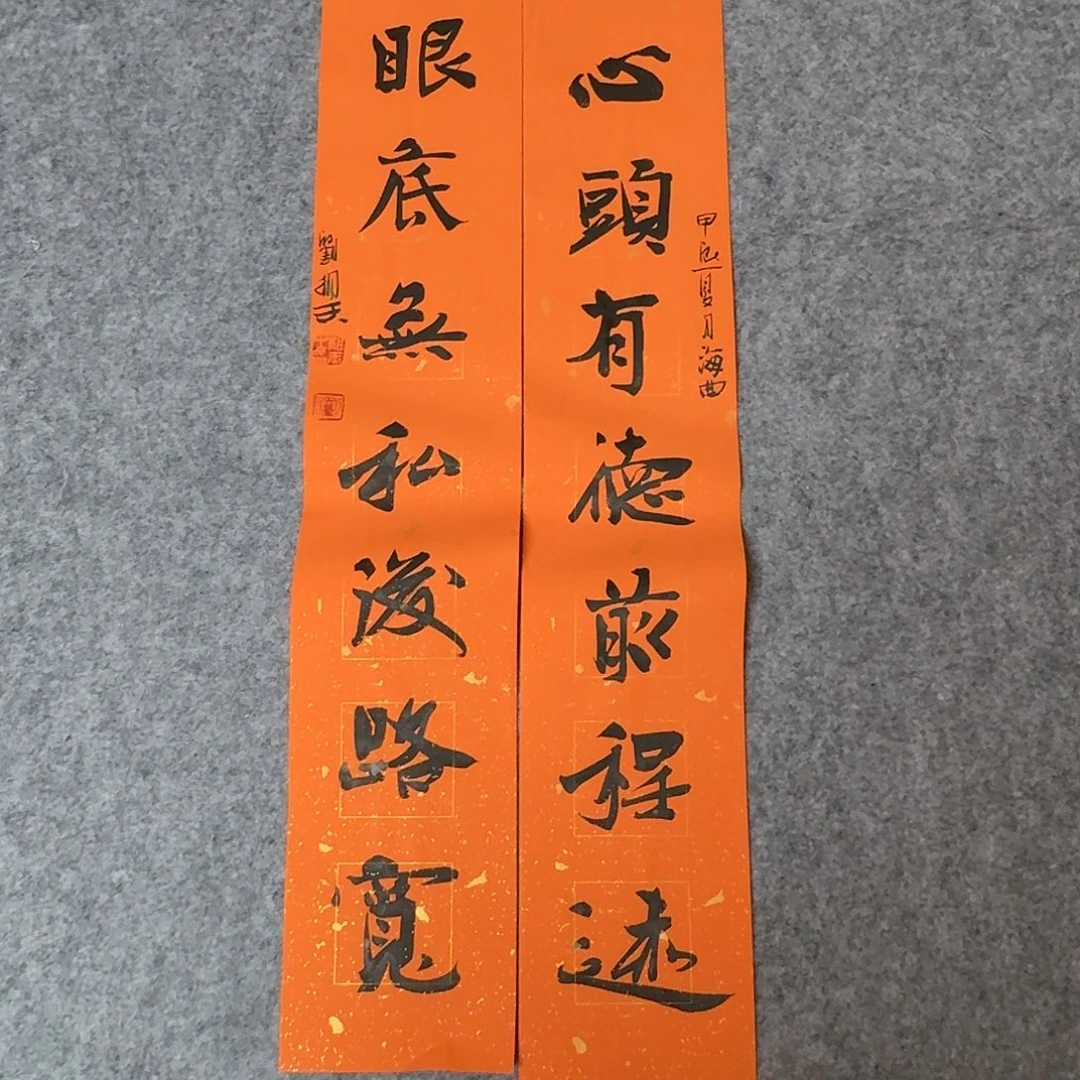 心頭有德前程遠
甲辰夏月海曲
眼底無私後路寬
劉